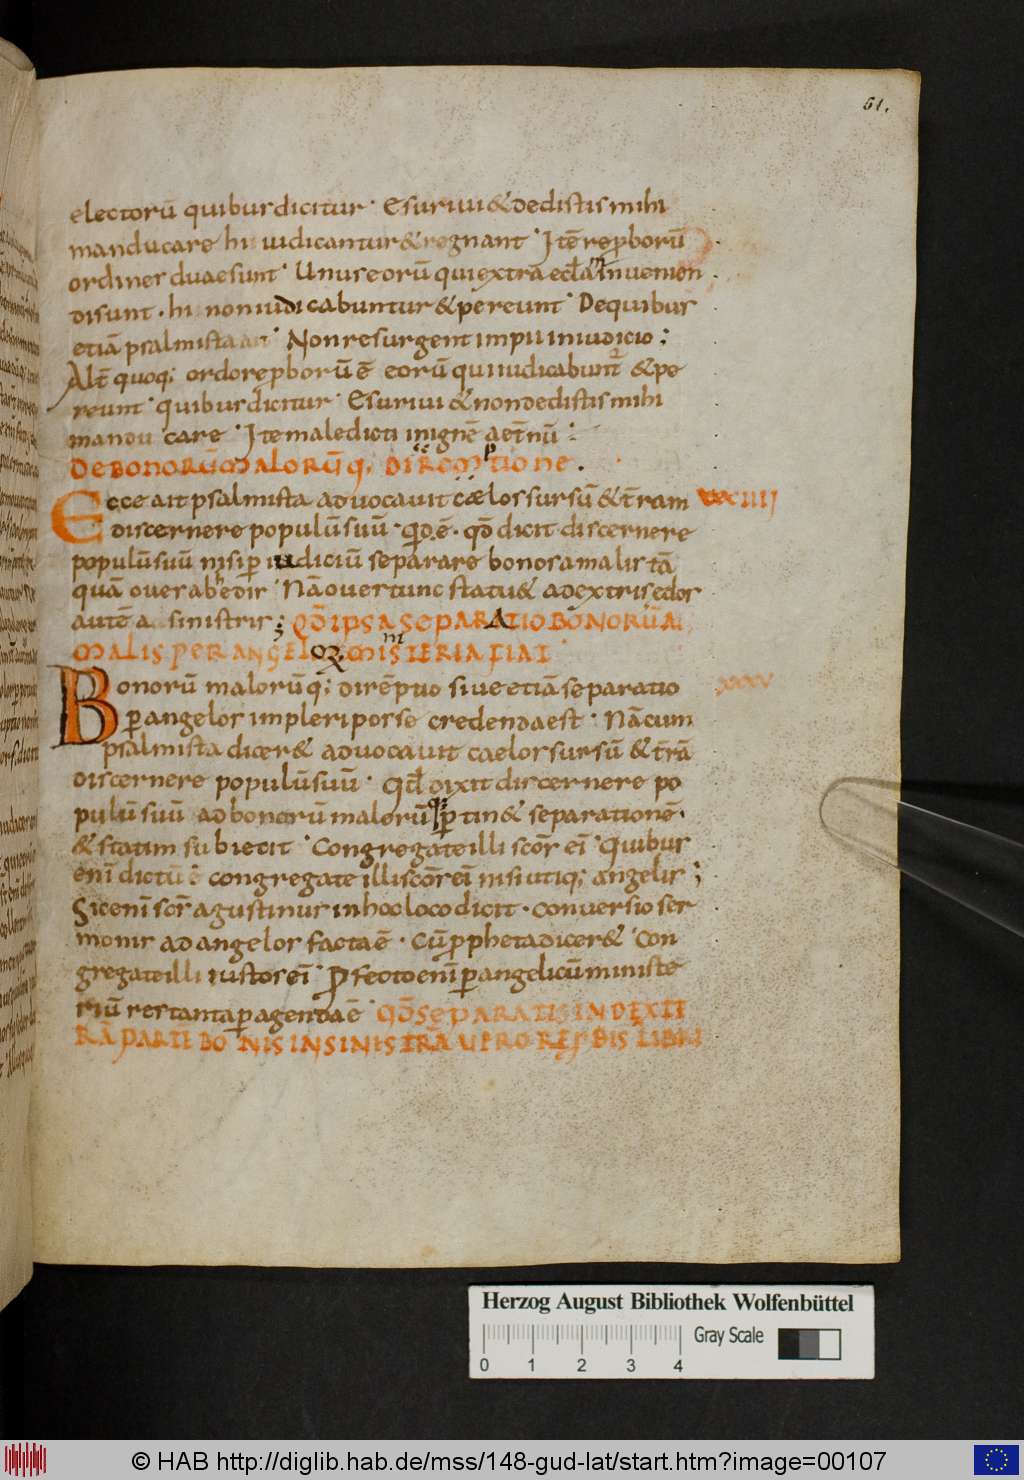 51.
electorū quibus dicitur · Esurivi & dedistis mihi
manducare hi iudicantur & regnant · Itē reproborū
ordines duae sunt · Unus eorū qui extra eccl̄am invenien
di sunt · hi non iudicabuntur & pereunt · De quibus
etiā psalmista ait · Non resurgent impii in iudicio ;
Alt̄ quoq; ordo reproborū ē eorū qui iudicabunt̄ & pe
reunt · quibus dicitur · Esurivi & non dedistis mihi
manducare · Ite maledicti in ignē aet̄nū :
DE BONORŪ MALORŪQ, DIREMPTIONE .
Ecce ait psalmista advocavit cælos sursū & t̄ram XXXIIII
discernere populū suū · qd̄ ē · qd̄ dicit discernere
populū suū nisi p̄ iudiciū separare bonos a malis tā
quā oves ab hedis · Nā oves tunc statu& a dextris edos
autē a sinistris ; QD̄ IPSA SEPARATIO BONORŪ A
MALIS PER ANGELORŪ MINISTERIA FIAT
Bonorū malorūq; dirēptio sive etiā separatio XXXV
p̄ angelos impleri posse credenda est · Nā cum
psalmista dicer& advocavit caelos sursū & t̄rā
discernere populū suū · Qd̄ dixit discernere po
pulū suū ad bonorū malorūq; p̄tin& separationē ·
& statim subiecit · Congregate illi scōs ei · Quibus
enī dictū ē congregate illi scōs ei nisi utiq; angelis ;
Sic enī scs̄ agustinus in hoc loco dicit · conversio ser
monis ad angelos facta ē · Cū propheta dicer& · Con
gregate illi iustos ei · Profecto enī p̄ angelicū ministe
riū res tanta p̄agenda ē · QD̄ SEPARATIS IN DEXTE
RĀ PARTE BONIS IN SINISTRĀ VERO REPBIS LIBRI
Herzog August Bibliothek Wolfenbüttel
Gray Scale
0 1 2 3 4
© HAB http://diglib.hab.de/mss/148-gud-lat/start.htm?image=00107